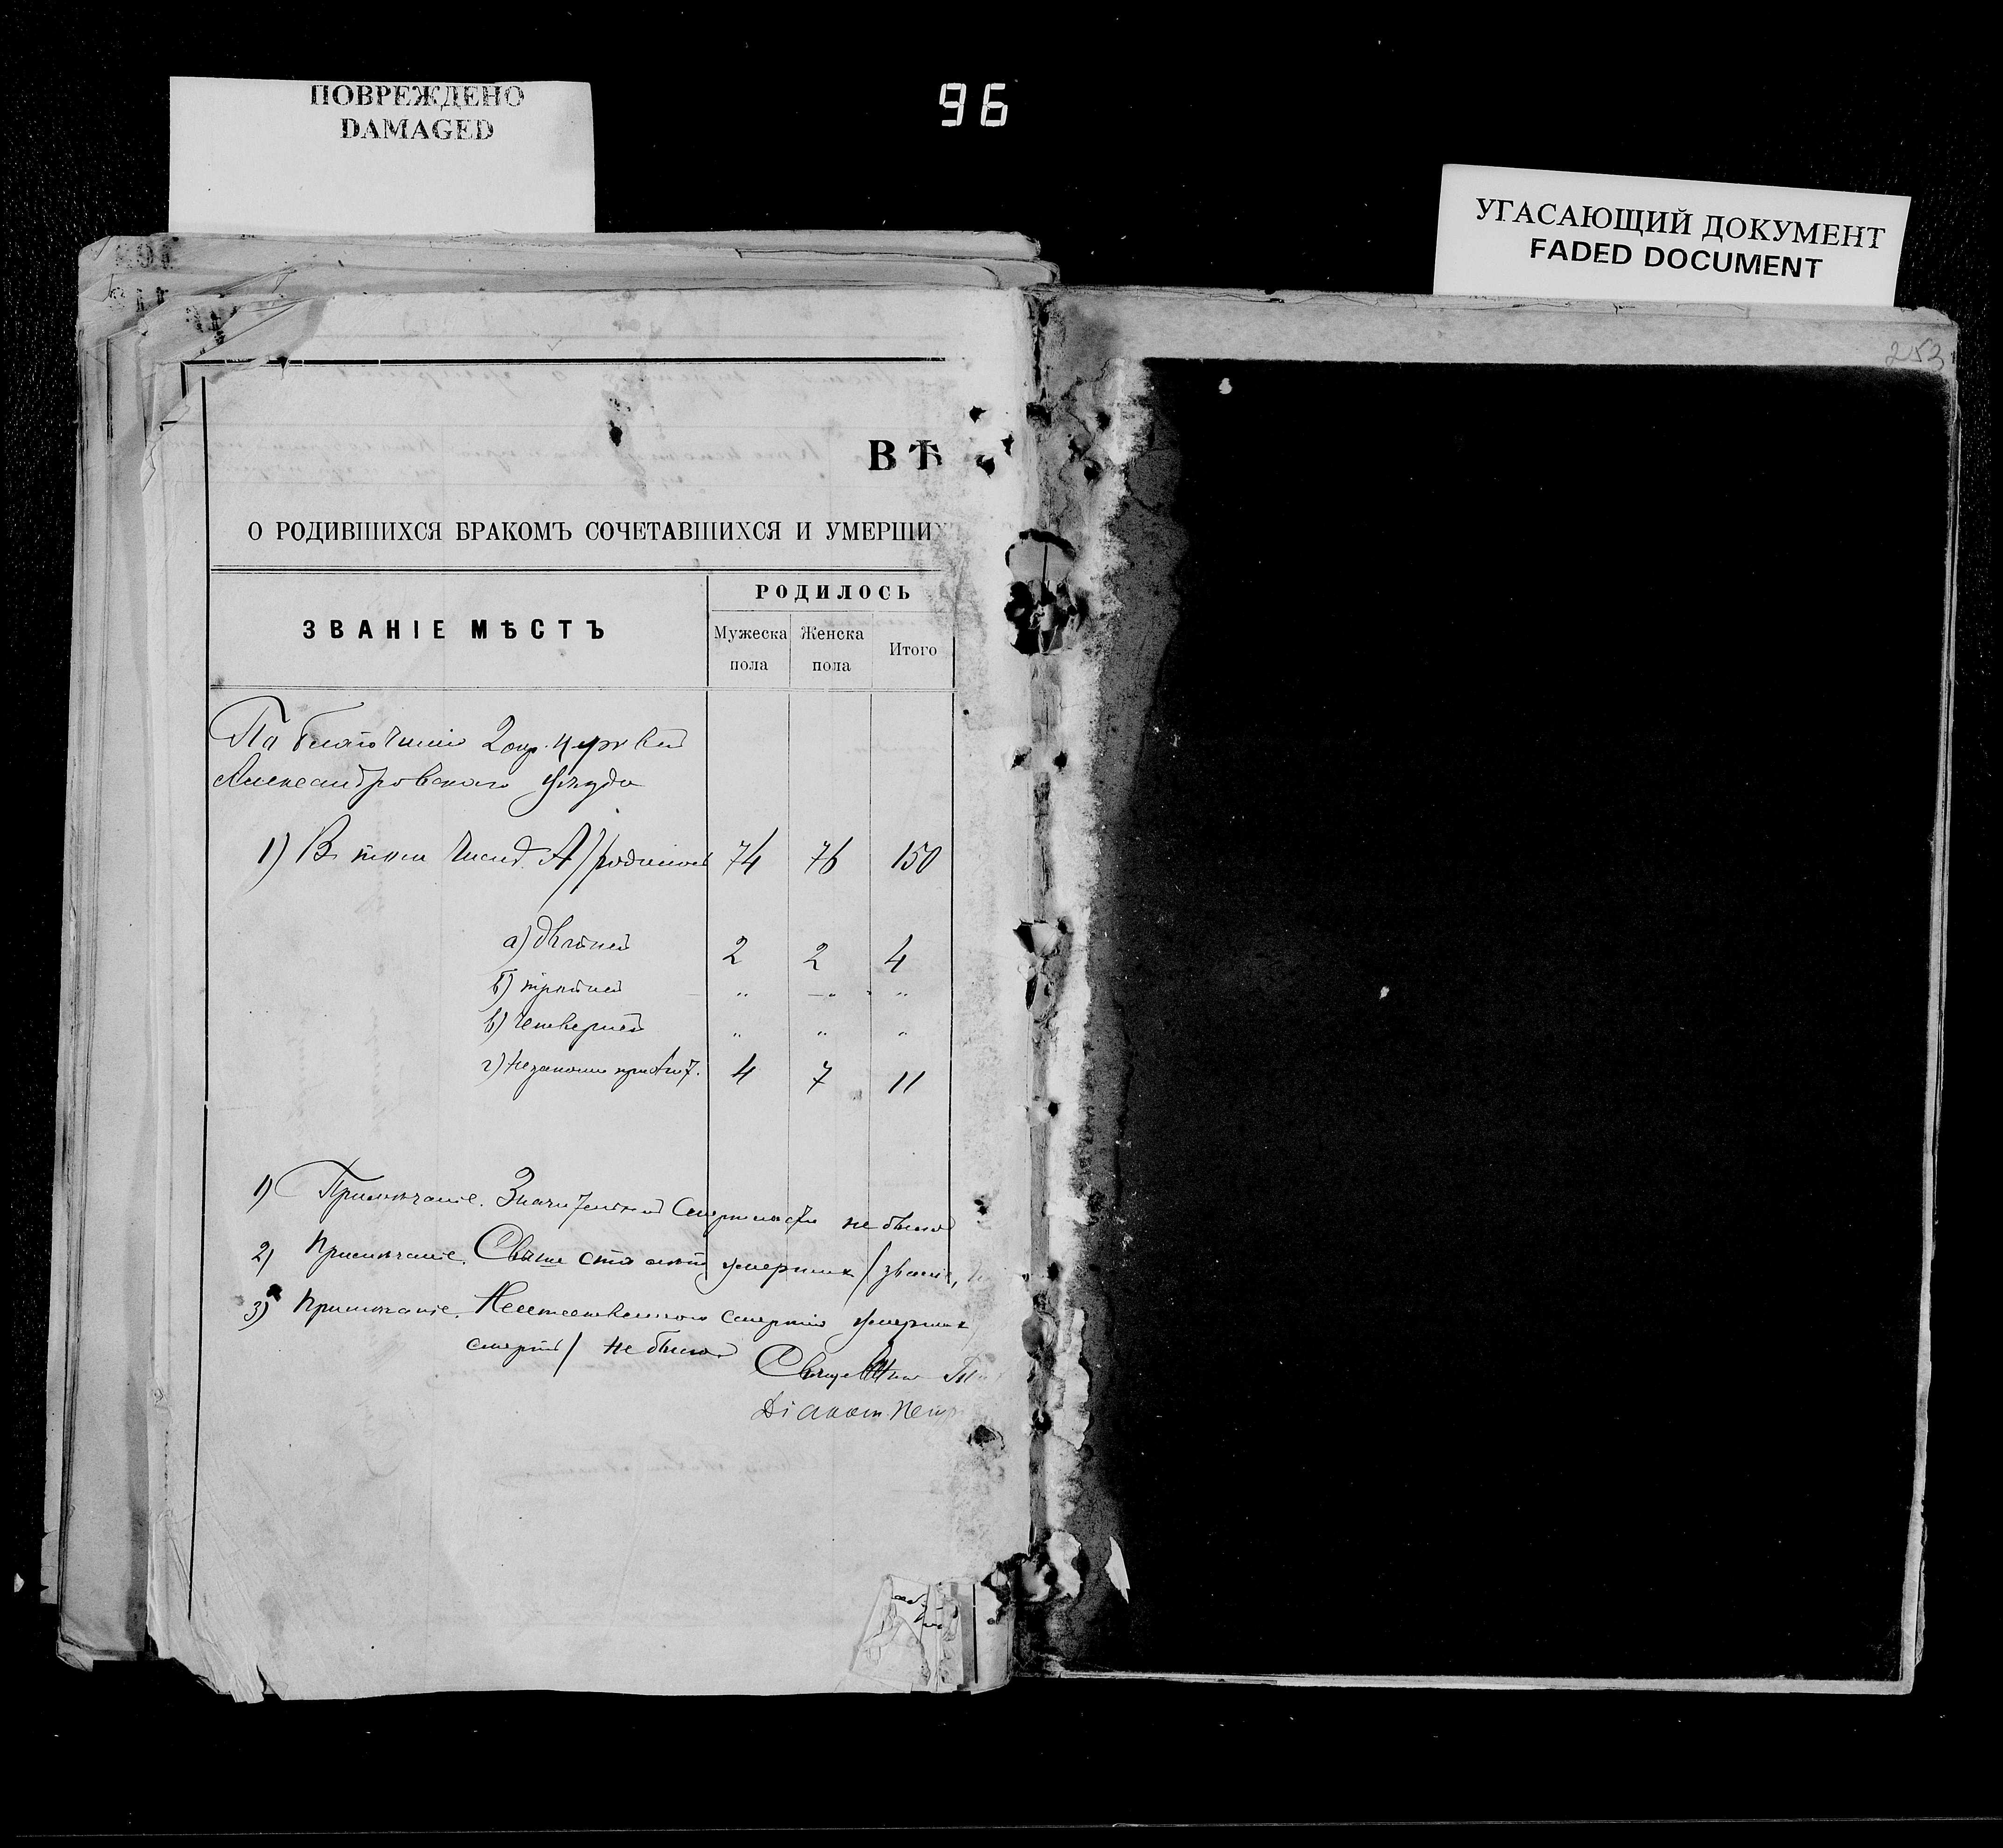 ПОВРЕЖДЕНО
DAMAGED
96
УГАСАЮЩИЙ ДОКУМЕНТ
FADED DOCUMENT
253
ВѢ
О РОДИВШИХСЯ БРАКОМЪ СОЧЕТАВШИХСЯ И УМЕРШИХ
ЗВАНІЕ МѢСТЪ
РОДИЛОСЬ
Мужеска пола
Женска пола
Итого
По благочинію 2 окр. церквей
Александровскаго уѣзда
1) Въ томъ числѣ А/ родилось 74 76 150
а) двойней 2 2 4
б) тройней „ „ „
в) четверней „ „ „
г) незаконно 4 7 11
1) Примѣчаніе. Значительной смертности не было
2) Примѣчаніе. Свыше ста лѣтъ умершихъ /званіе,
3) Примѣчаніе. Неестественною смертію умершихъ
смерти/ не было
Священникъ
Діаконъ Петр